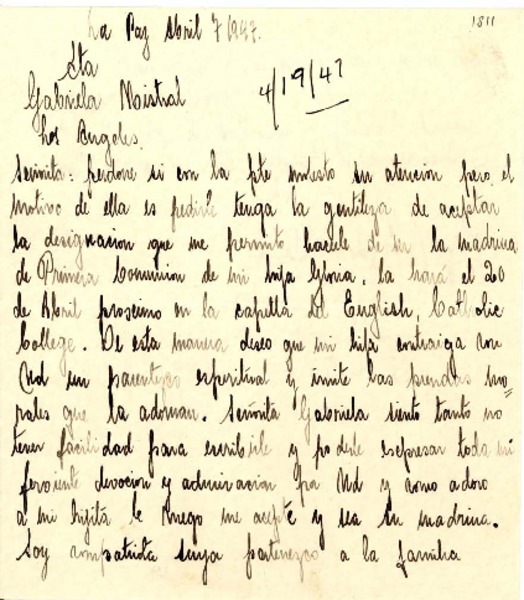 1811
La Paz Abril 7 1947.
Sta
Gabriela Mistral
4/19/47
Los Angeles.
Señorita: perdone si con la pte molesto su atencion pero el
motivo de ella es pedirle tenga la gentileza de aceptar
la designacion que me permito hacerle de ser la madrina
de Primera Comunion de mi hija Gloria, la hará el 20
de Abril proscimo en la capilla del English, Catholic
College. De esta manera deseo que mi hija contraiga con
Ud un parentezco espiritual y imite las prendas mo=
rales que la adornan. Señorita Gabriela siento tanto no
tener facilidad para escribirle y poderle escpresar toda mi
ferviente devocion y admiracion por Ud y como adoro
a mi hijita le ruego me acepte y sea su madrina.
Soy compatriota suya pertenezco a la familia